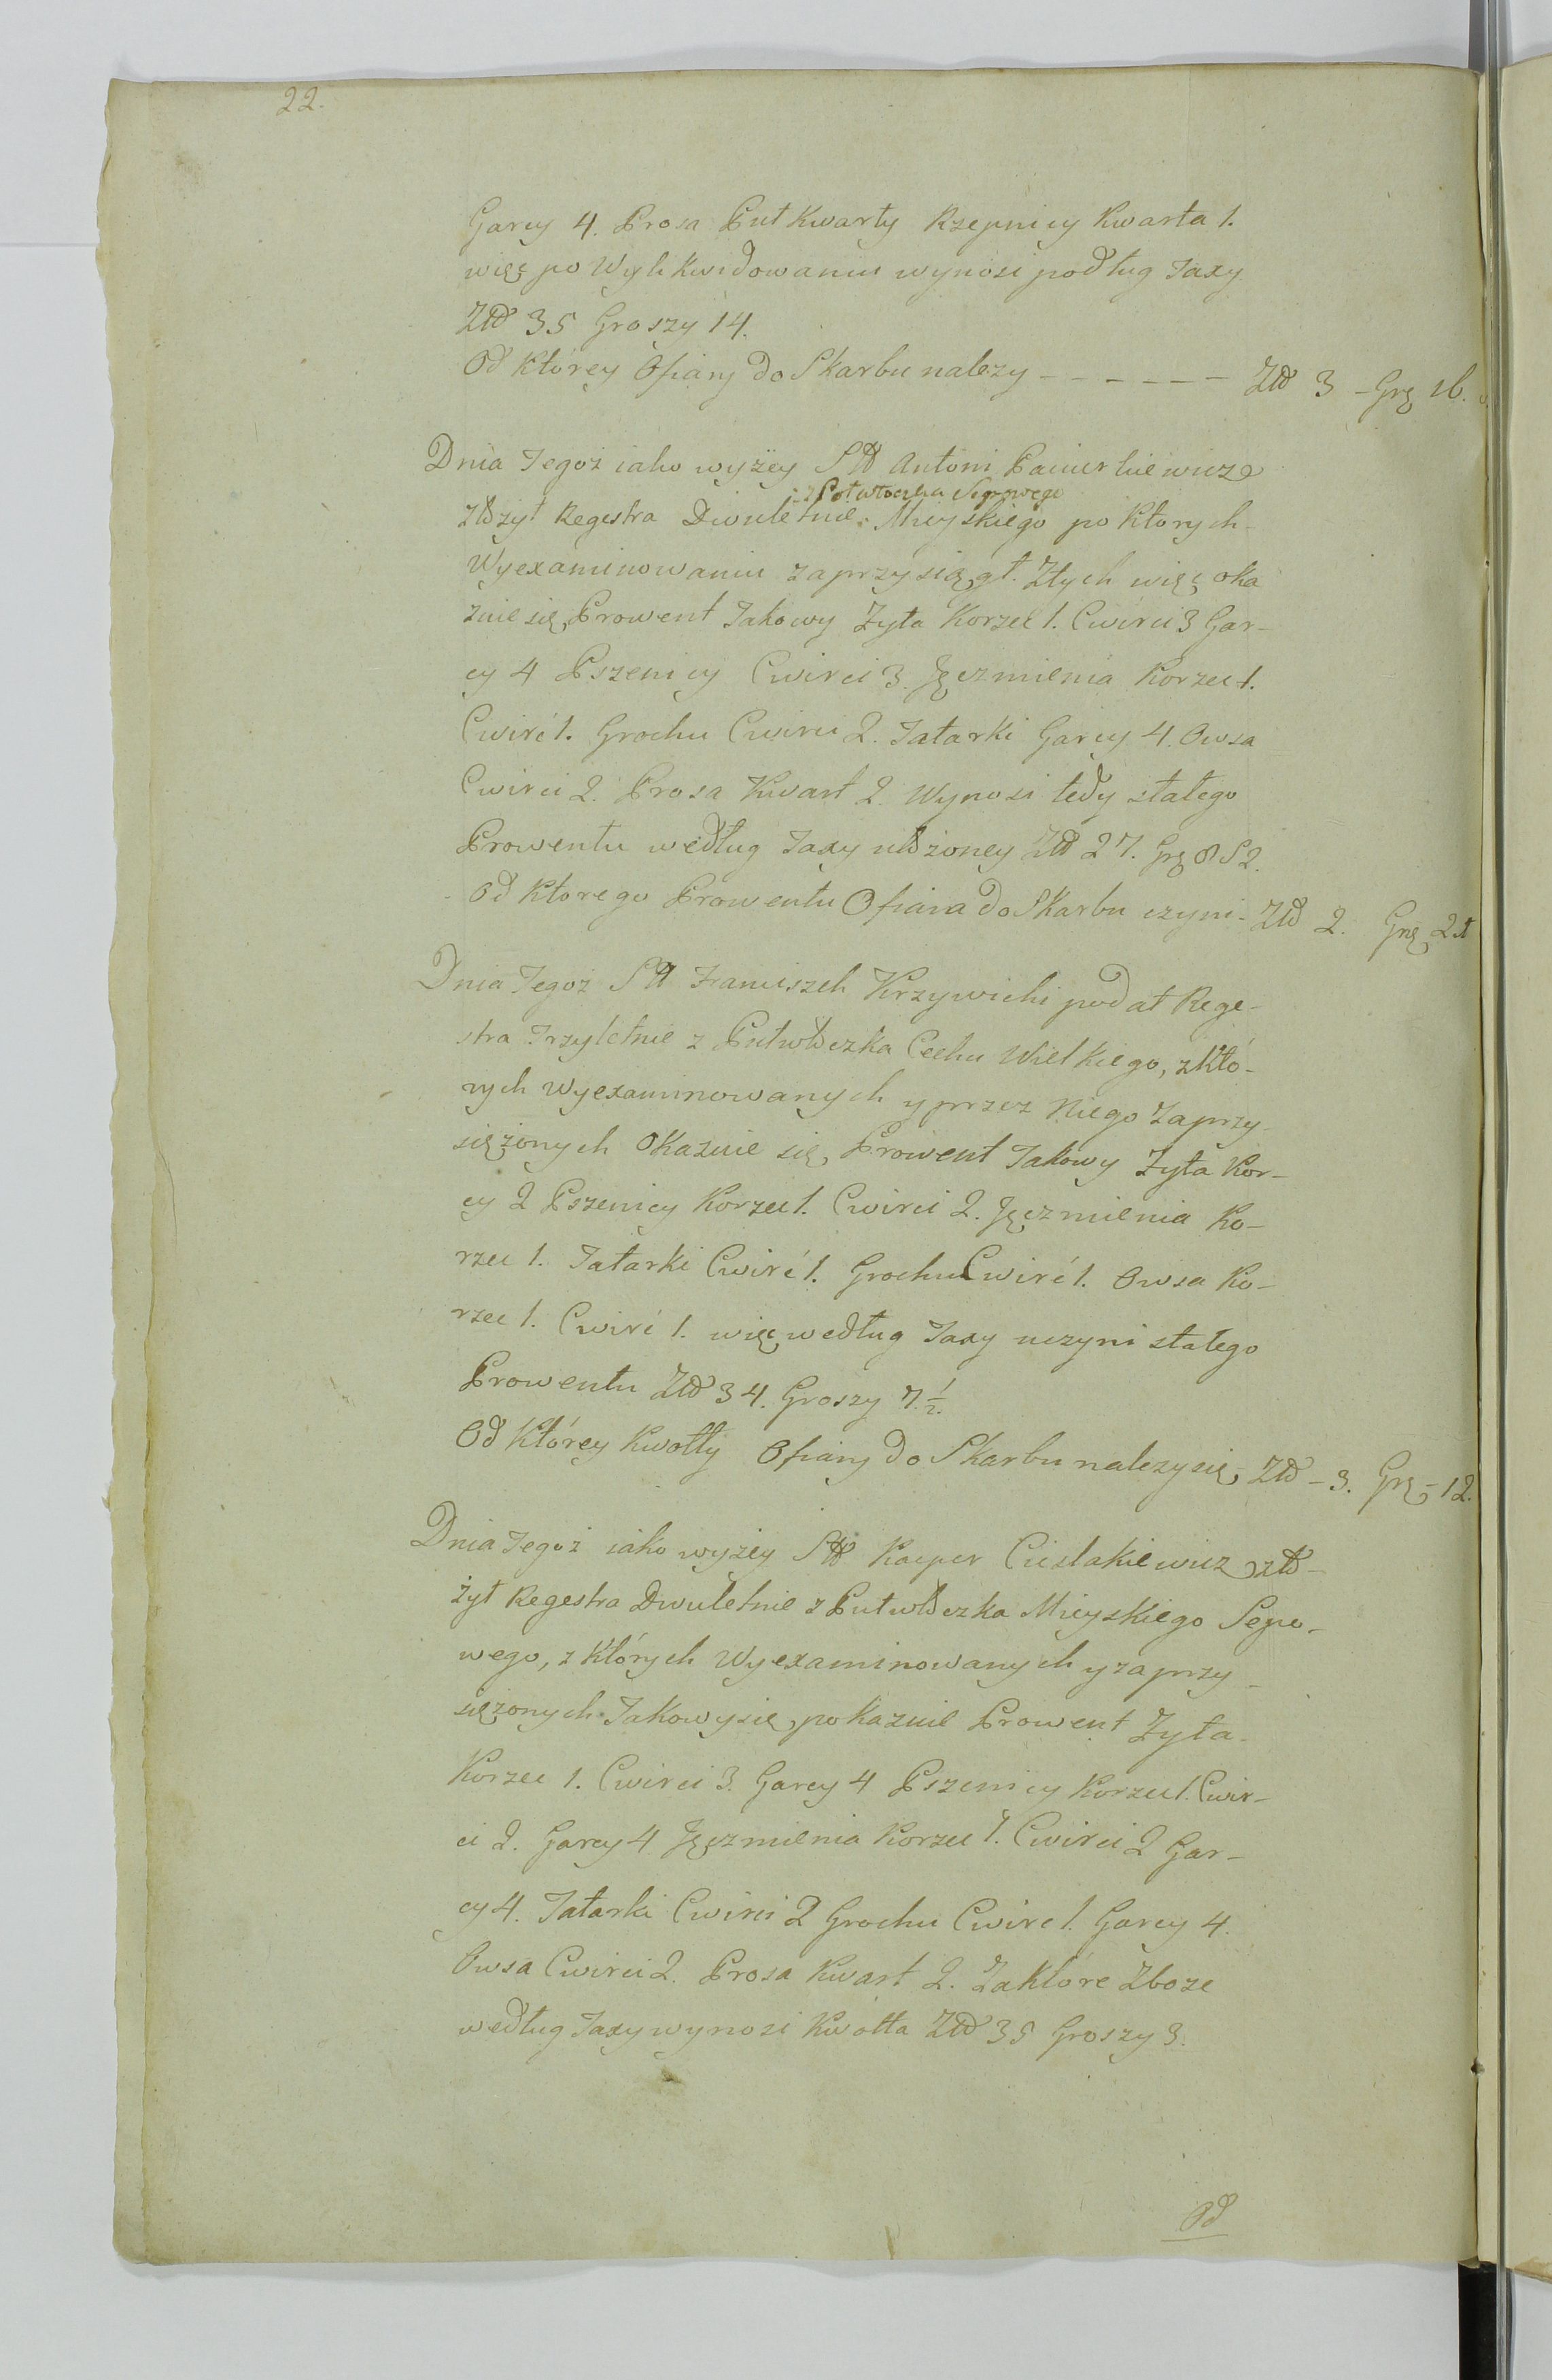 22.
Garcy 4. Prosa Puł Kwarty Rzepnicy Kwarta 1.
więc po Wylikwidowaniu wynosi podług Taxy
Złł 35 Groszy 14.
Od Którey Ofiary do Skarbu nalezy - - - - - - Złł 3 - Grę 16.
Dnia Tegoż iako wyżey Antoni
z Połwłoczka Sepowego
złożył Regestra Dwuletnie Mieyskiego po Ktorych
Wyexaminowaniu zaprzysiągł. Ztych więc oka
zuie się Prowent Takowy Zyta Korzec 1. Cwirci 3 Gar-
cy 4 Pszenicy Cwirci 3. Jęczmienia Korzec 1.
Cwirć 1. Grochu Cwirci 2. Tatarki Garcy 4. Owsa
Cwirci 2. Prosa Kwart 2. Wynosi tedy stałego
Prowentu według Taxy ułożoney Złł 27. Grę 8 S 2.
Od Ktorego Prowentu Ofiara do Skarbu czyni - Złł 2. Grę 21
Dnia Tegoż Franciszek Krzywicki podał Rege-
stra Trzyletnie z Pułwłoczka Cechu Wielkiego, z Któ-
rych Wyexaminowanych y przez Niego Zaprzy-
siężonych Okazuie się Prowent Takowy Zyta Kor-
cy 2 Pszenicy Korzec 1. Cwirci 2. Jęczmienia Ko-
rzec 1. Tatarki Cwirć 1. Grochu Cwirć 1. Owsa Ko-
rzec 1. Cwirć 1. więc według Taxy uczyni stałego
Prowentu Złł 34. Groszy 7. 1/2.
Od Którey Kwotty Ofiary do Skarbu nalezy się Złł - 3. Grę - 12.
Dnia Tegoż iako wyżey Kacper Cieslakiewicz zło-
żył Regestra Dwuletnie z Pułwłoczka Mieyskiego Sepo-
wego, z Których Wyexaminowanych y zaprzy-
siężonych Takowy się pokazuie Prowent Zyta
Korzec 1. Cwirci 3. Garcy 4 Pszenicy Korzec 1. Cwir-
ci 2. Garcy 4 Jęczmienia Korzec 1. Cwirci 2 Gar-
cy 4. Tatarki Cwirci 2 Grochu Cwirc 1. Garcy 4.
Owsa Cwirci 2. Prosa Kwart 2. Za Które Zboze
według Taxy wynosi Kwotta Złł 35 Groszy 3.
Od